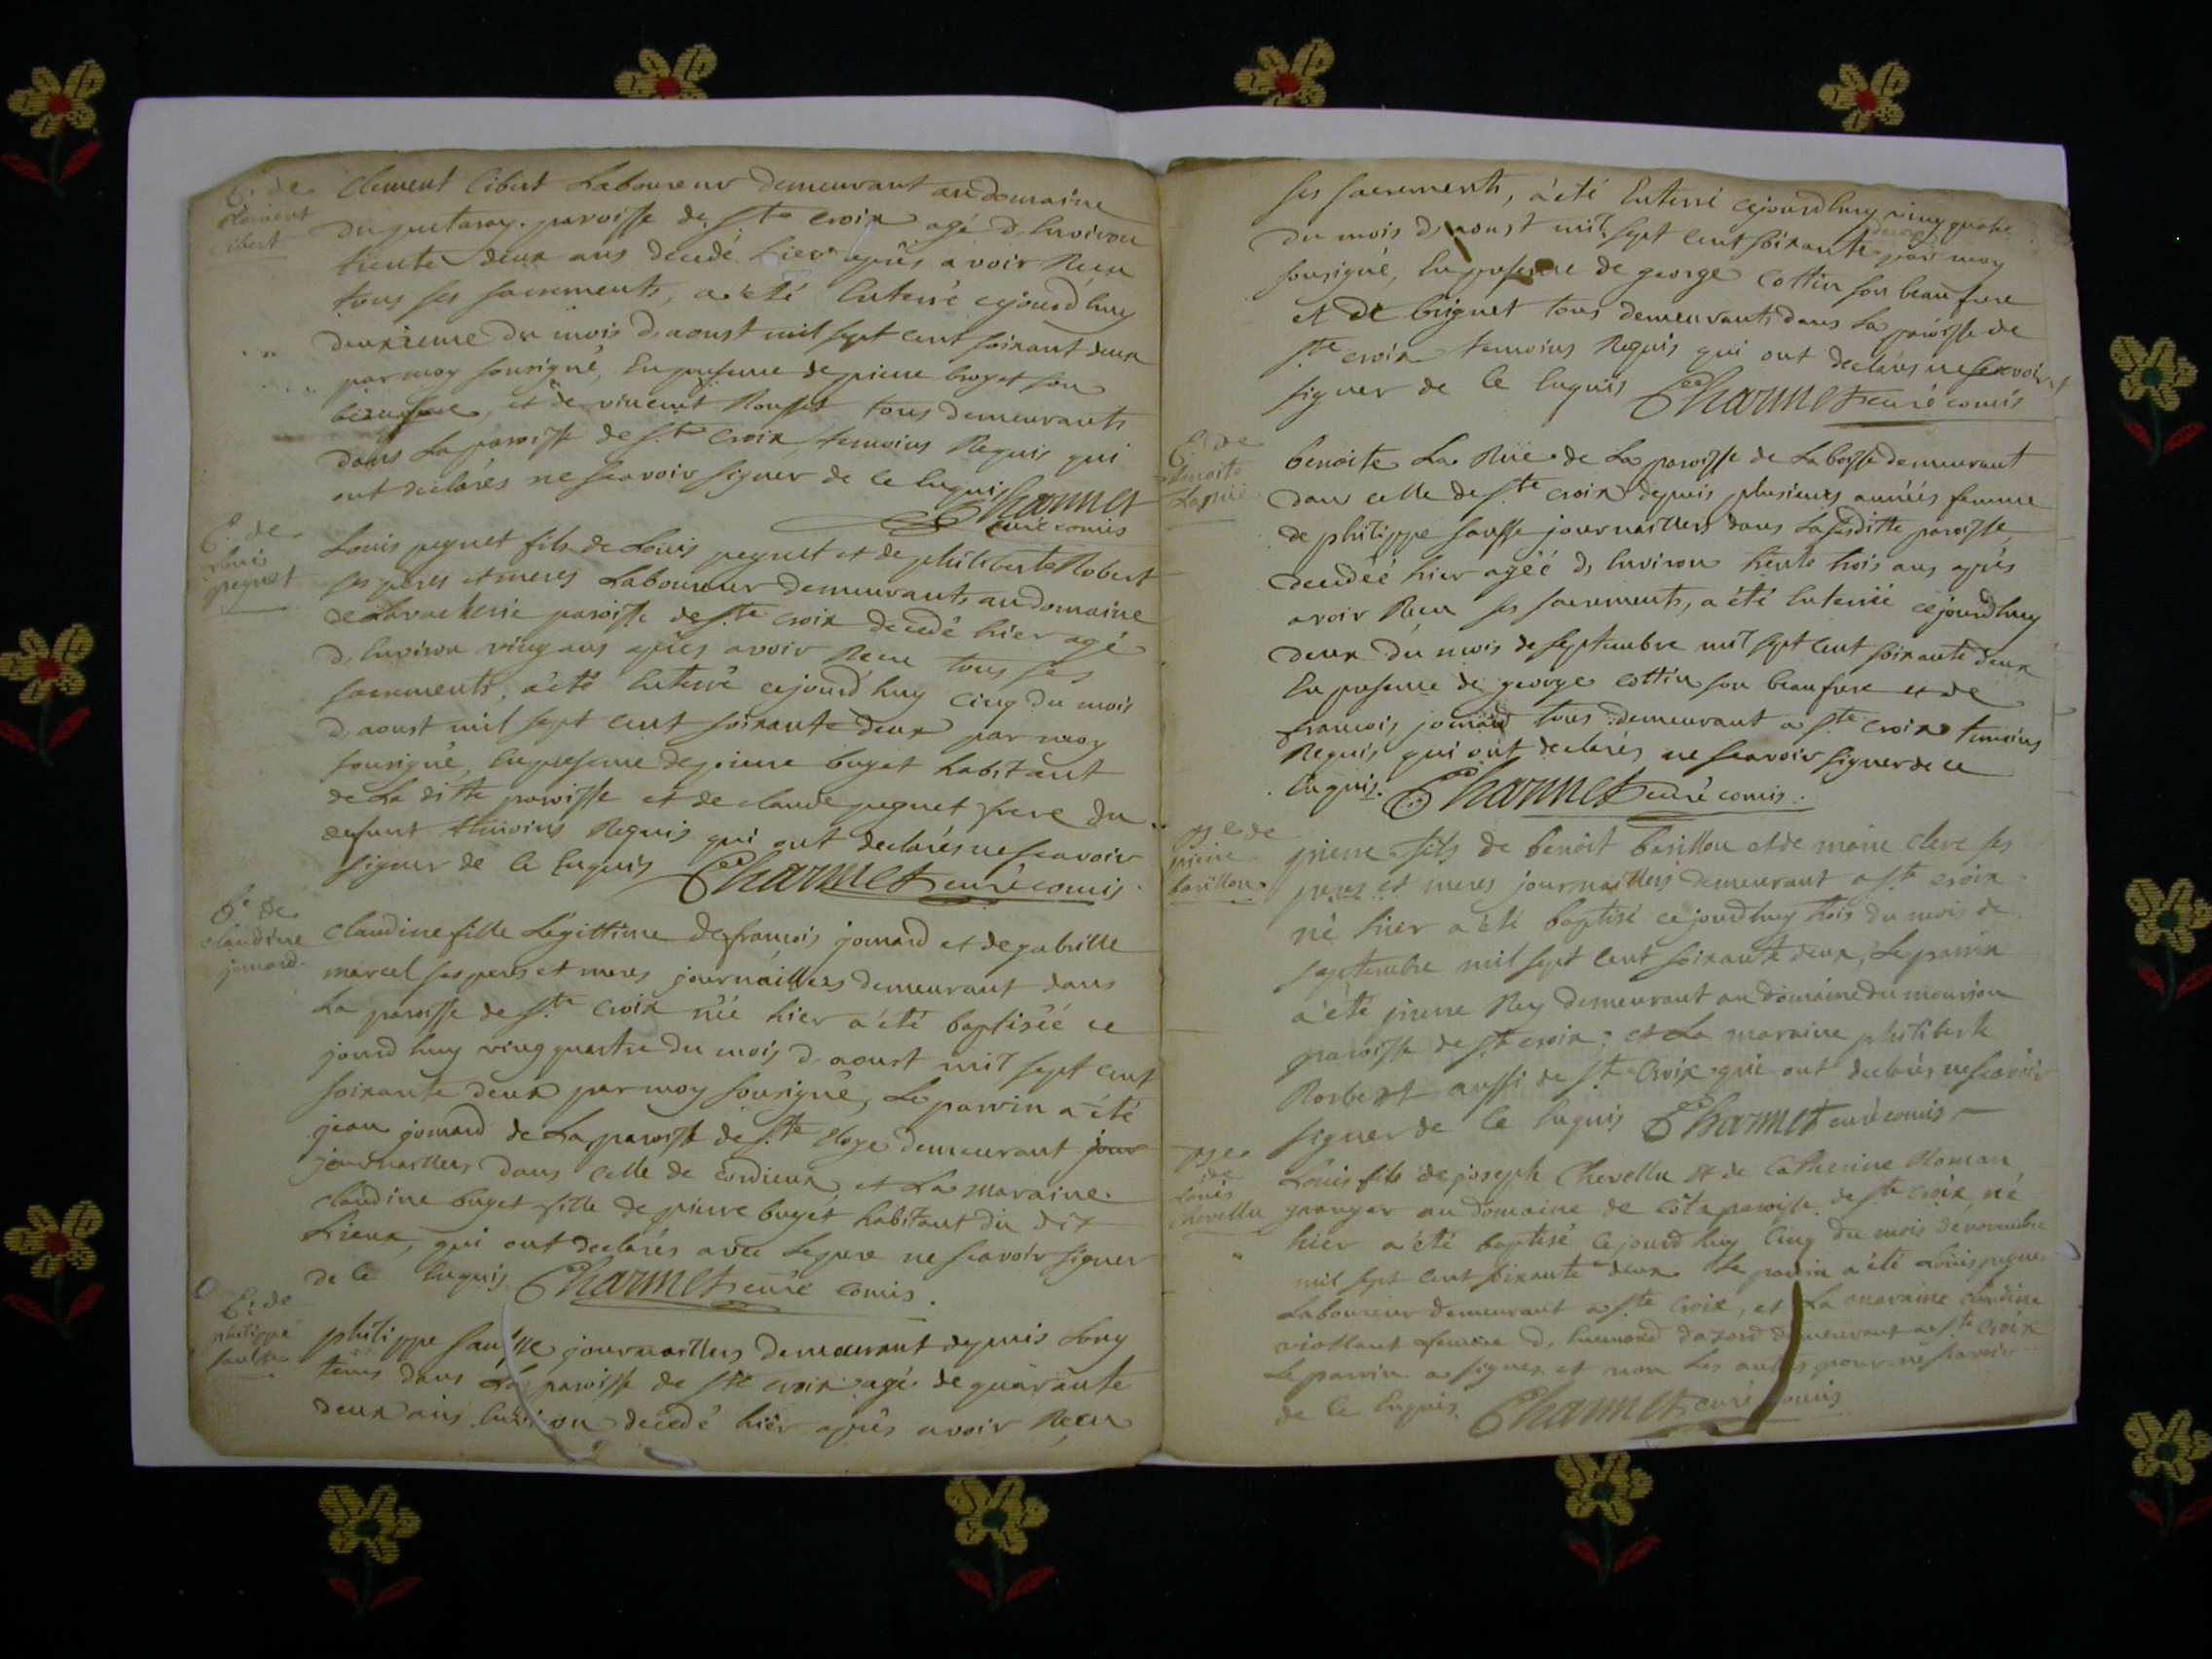 E. de
Clement
Cibert
Clement Cibert Laboureur demeurant au domaine
du paroisse de Ste Croix agé d'environ
trente deux ans decedé hier après avoir Receu
tous ses sacrements, a été Enterré cejourd'huy
deuxieme du mois d'aoust mil sept cent soixant deux
par moy sousigné, En presence de pierre son
beaufrere, et de vincent Rousset tous demeurants
dans La paroisse de Ste Croix, temoins Requis qui
ont declarés ne scavoir signer de ce Enquis Charmet
curé comis
E. de
Louis
pegnet
Louis pegnet fils de Louis pegnet et de philiberte Robert
ses peres et meres Laboureur demeurants au domaine
de paroisse de Ste Croix decedé hier agé
d'Environ ving ans après avoir Receu tous ses
sacrements, a été Enterré cejourd'huy cinq du mois
d'aoust mil sept cent soixante deux par moy
sousigné, En presence de pierre buget habitant
de La ditte paroisse et de claude pegnet frere du
defunt temoins Requis qui ont declarés ne scavoir
signer de ce Enquis Charmet curé comis.
Be de
claudine
jomard.
Claudine fille Legittime de francois jomard et de gabrille
marcel ses peres et meres journaillers demeurant dans
La paroisse de Ste Croix née hier a été baptisée ce
jourd'huy ving quatre du mois d'aoust mil sept cent
soixante deux par moy sousigné, Le parrin a été
jean jomard de La paroisse de Ste Eloye demeurant jour
journailler dans celle de cordieux et La maraine
claudine buget fille de pierre buget habitant du dit
Lieux, qui ont declarés avec Le pere ne scavoir signer
de ce Enquis Charmet curé comis.
E. de
philippe
sausse
philippe sausse journaillers demeurant depuis Long
tems dans La paroisse de Ste croix agé de quarante
deux ans Environ decedé hier après avoir Receu
ses sacrements, a été Enterré cejourd'huy ving quatre
du mois d'aoust mil sept cent soixante deux par moy
sousigné, En presence de george Cottin son beaufrere
et de buget tous demeurants dans La paroisse de
Ste croix temoins Requis qui ont declarés ne scavoir
signer de ce Enquis Charmet curé comis
E. de
benoite
La Rüe
benoite La Rüe de La paroisse de La boisse demeurant
dans celle de Ste Croix depuis plusieurs années femme
de philippe sausse journaillers dans La susditte paroisse,
decedéé hier agéé d'Environ trente trois ans après
avoir Receu ses sacrements, a été Enterréé cejourd'huy
deux du mois de septembre mil sept cent soixante deux
En presence de george cottin son beaufrere et de
francois jomard tous demeurant a Ste Croix temoins
Requis qui ont declarés ne scavoir signer de ce
Enquis. Charmet curé comis.
Be de
pierre
barillon
pierre fils de benoit barillon et de marie clere ses
peres et meres journaillers demeurant a Ste croix
né hier a été baptisé cejourd'huy trois du mois de
septembre mil sept cent soixante deux, Le parrin
a été pierre Rey demeurant au domaine du
paroisse de Ste croix; et La maraine philiberte
Robert aussi de Ste Croix qui ont declarés ne scavoir
signer de ce Enquis Charmet curé comis
Be
de
Louis
Chevellu
Louis fils de joseph Chevellu et de Catherine Roman
granger au domaine de paroisse de Ste croix, né
hier a été baptisé cejourd'huy cinq du mois de novembre
mil sept cent soixante deux Le parrin a été Louis
Laboureur demeurant a Ste Croix, et La maraine claudine
femme d' demeurant a Ste Croix
Le parrin a signer et non Les autres pour ne scavoir
de ce Enquis. Charmet curé comis